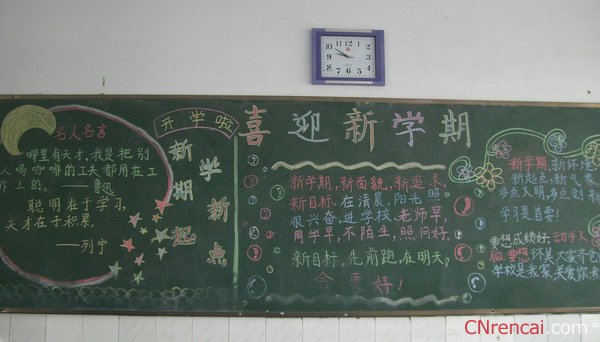 名人名言
哪里有天才,我是把别
人喝咖啡的工夫都用在工
作上的。——鲁迅
聪明在于学习,
天才在于积累。
——列宁
开学啦
学新点
新期起
喜迎新学期
新学期,新面貌,新追求,
新目标,在清晨,阳光照
很兴奋,进学校,老师早,
同学早,不陌生,照问好。
新目标,先前跑,在明天,
会更好!
新学期,新环境
新起点,新气象,
多点文明,多点创新
学习是首要!
要想成绩好,动手又
脑,要想环美大家齐
学校是我家,关爱你我
12
CNrencai.com